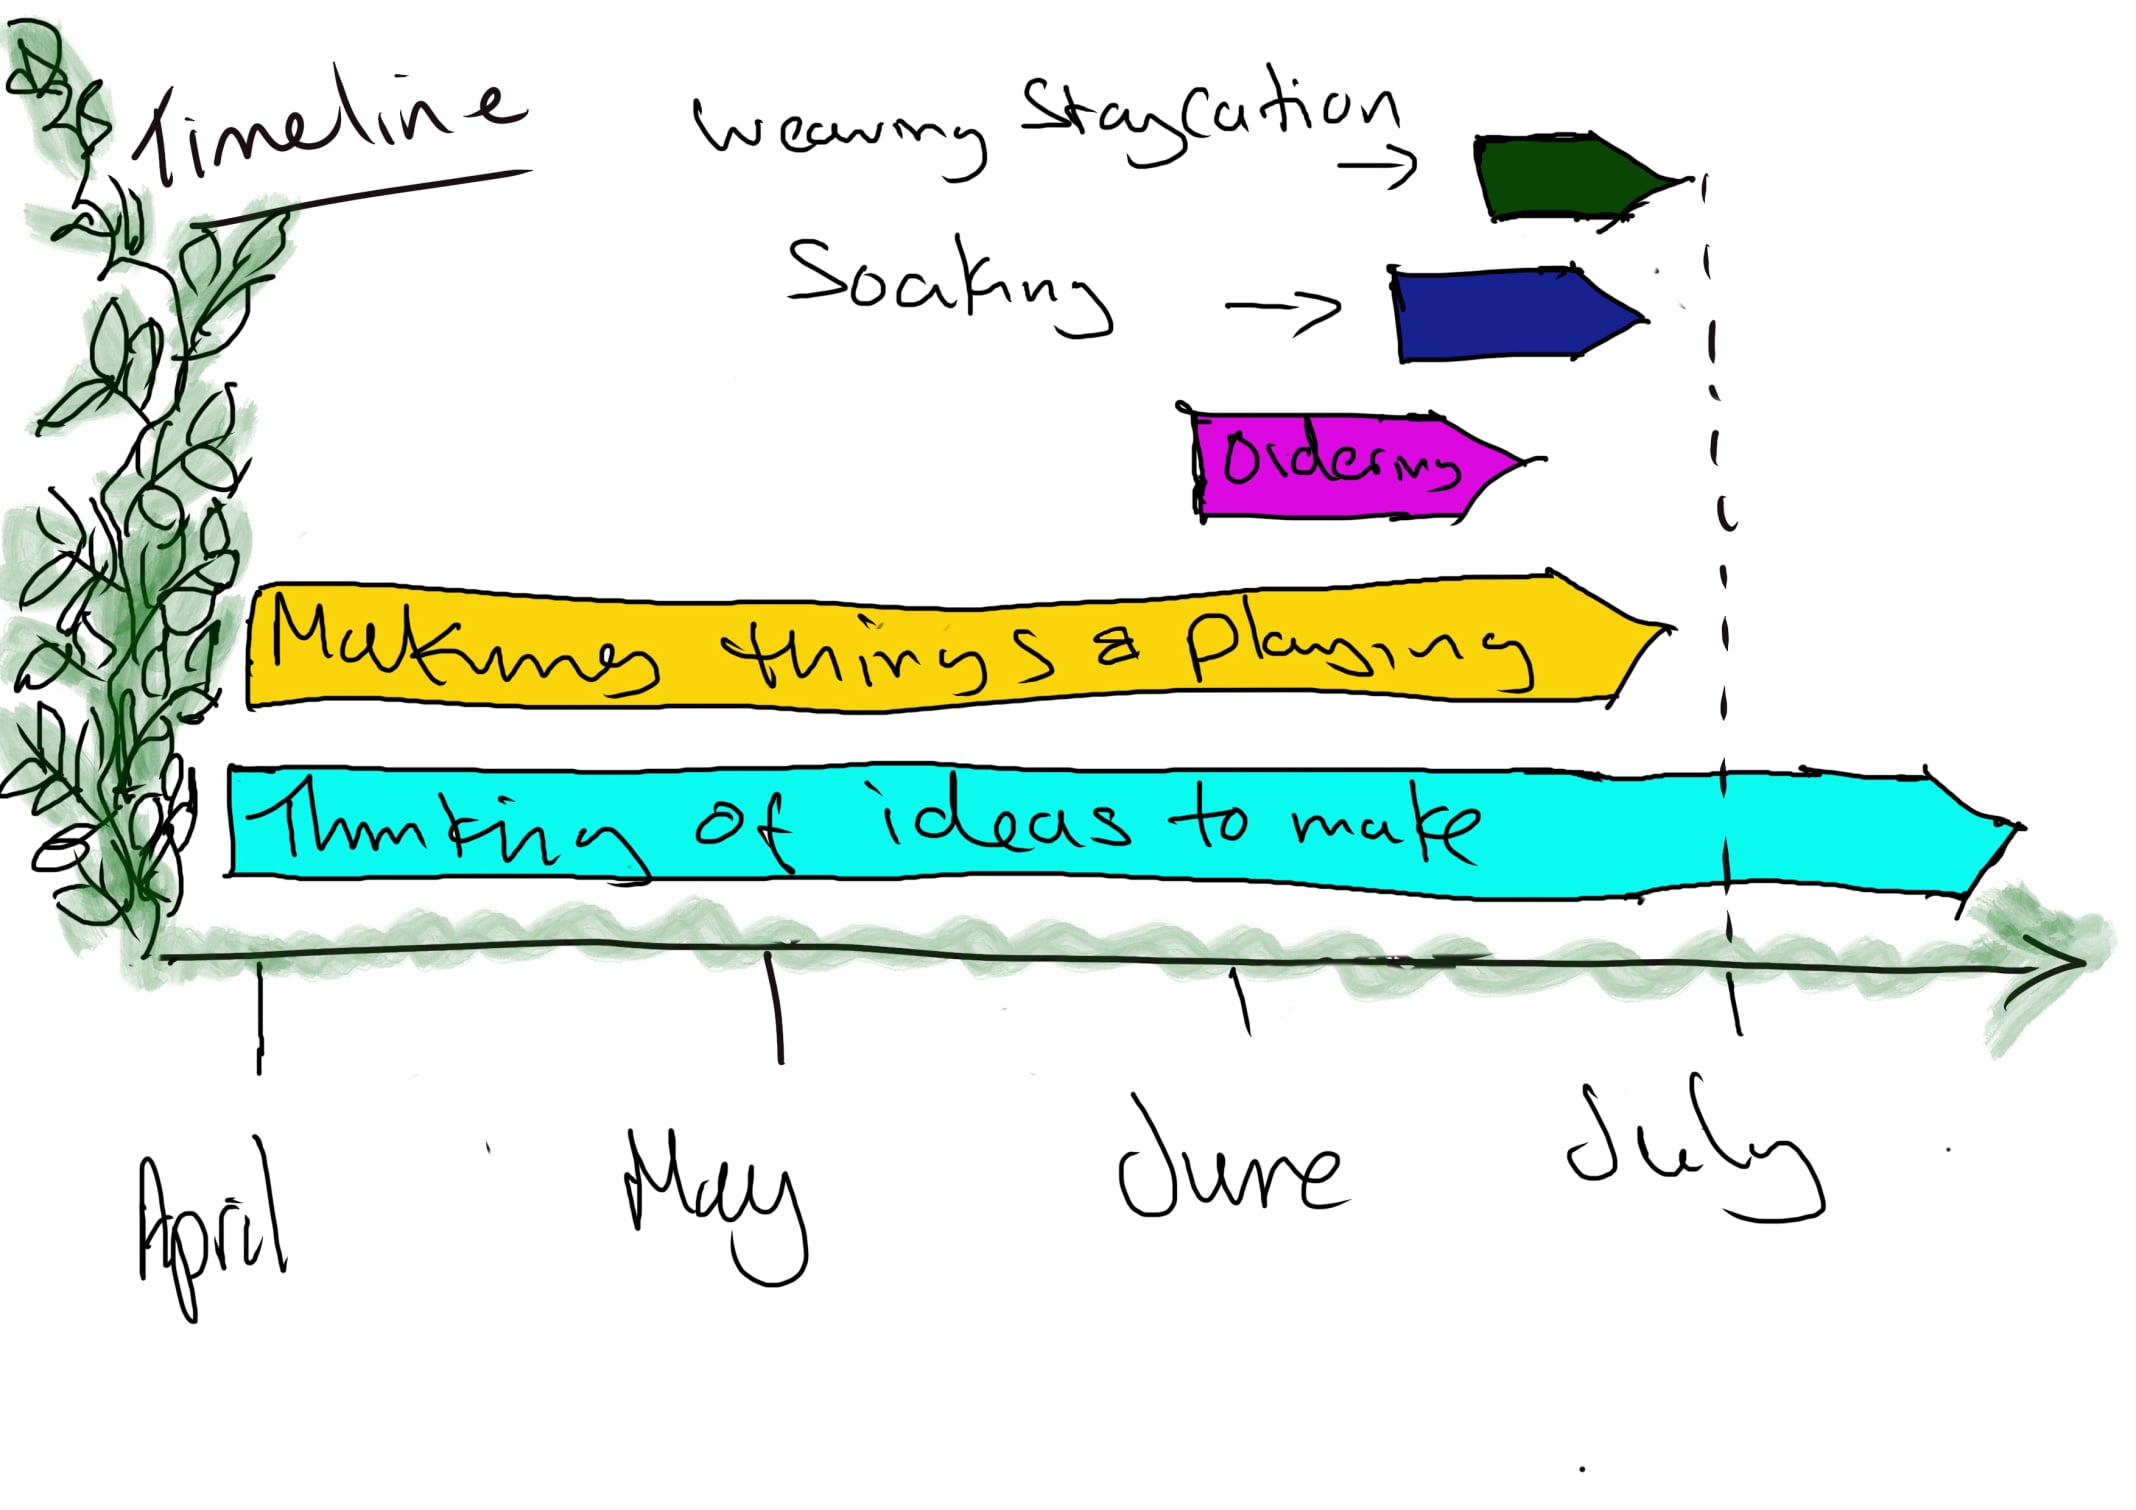 Timeline
Weaving Staycation
Soaking
Ordering
Making things & playing
Thinking of ideas to make
April
May
June
July